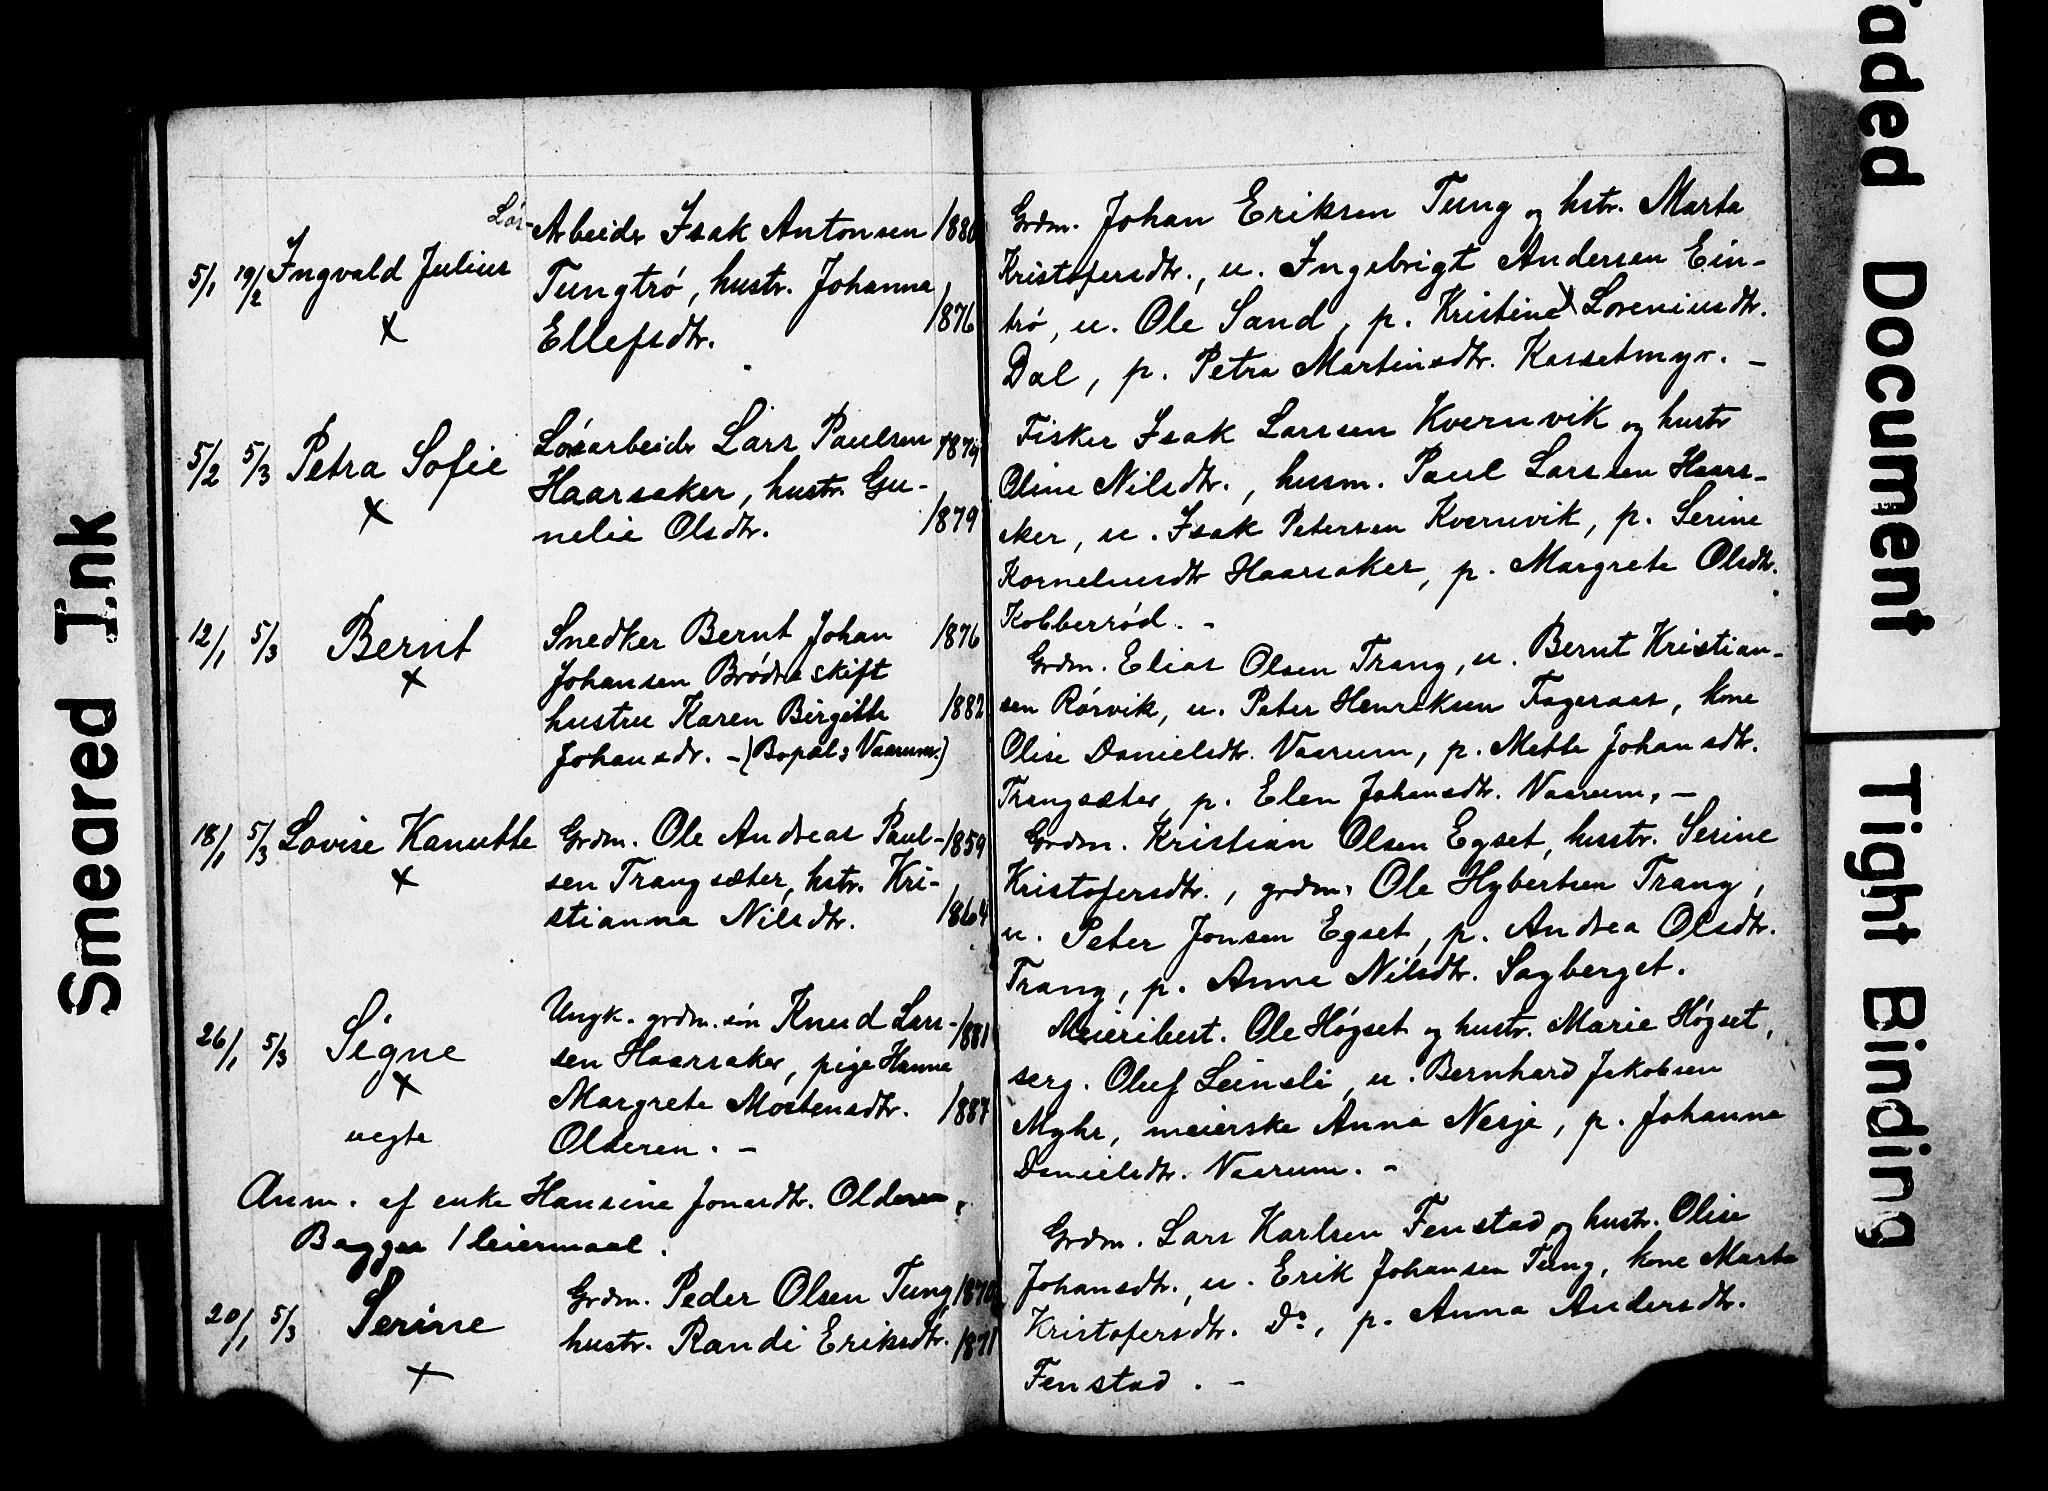 Lös-
Arbeidr Isak Antonsen /1880
5/1 19/2 Ingvald Julius Tungtrø, hustr. Johanna
x Ellefsdtr. /1876
5/2 5/3 Petra Sofie Løsarbeidr Lars Paulsen 1879
x Haarsaker, hustr. Gu-
nelie Olsdtr. /1879
12/1 5/3 Bernt Snedker Bernt Johan /1876
x Johansen Brødreskift
hustru Karen Birgitte /1882
Johansdr. - (Bopæl: Vaarum.)
18/1 5/3 Lovise Kanutte Grdm. Ole Andreas Paul- /1859
x sen Trangsæter, hstr. Kri-
stianna Nilsdtr. /1864
26/1 5/3 Signe Ungk. grdm.søn Knud Lars- /1881
x sen Haarsaker, pige Hanna
uegte Margrete Mortensdtr. /1887
Olderen. -
Anm. af enke Hansine Jonasdtr. Olderen.
Begges 1 leiermaal.
20/1 5/3 Serine Grdm. Peder Olsen Tung, 1870
x hustr. Randi Eriksdtr. /1871
Grdm. Johan Eriksen Tung og hstr. Marta
Kristofersdtr., u. Ingebrigt Andersen Ein-
trø, u. Ole Sand, p. Kristine Loreniusdtr.
Dal, p. Petra Martinsdtr. Kassetmyr. -
Fisker Isak Larssen Kvernvik og hustr
Oline Nilsdtr., husm. Paul Larssen Haars-
aker, u. Isak Petersen Kvernvik, p. Serine
Korneliusdtr Haarsaker, p. Margrete Olsdtr.
Kobberrød. -
Grdm. Elias Olsen Trang, u. Bernt Kristian-
sen Rørvik, u. Peter Henriksen Fageraas, kone
Olise Danielsdtr. Vaarum, p. Mette Johansdtr.
Trangsæter, p. Elen Johansdtr. Vaarum. -
Grdm. Kristian Olsen Egset, husstr. Serine
Kristofersdtr., grdm. Ole Hybertsen Trang,
u. Peter Jonsen Egset, p. Andrea Olsdtr.
Trang, p. Anna Nilsdtr. Sagberget.
Meieribest. Ole Høgset og hustr. Marie Høgset,
serg. Oluf Leinsli, u. Bernhard Jakobsen
Myhr, meierske Anna Nesje, p. Johanna
Danielsdtr. Vaarum. -
Grdm. Lars Karlsen Fenstad og hustr. Olise
Johansdtr., u. Erik Johansen Tung, kone Marta
Kristofersdtr. Do, p. Anna Andersdtr.
Fenstad. -
Smeared Ink
Faded Document
Tight Binding